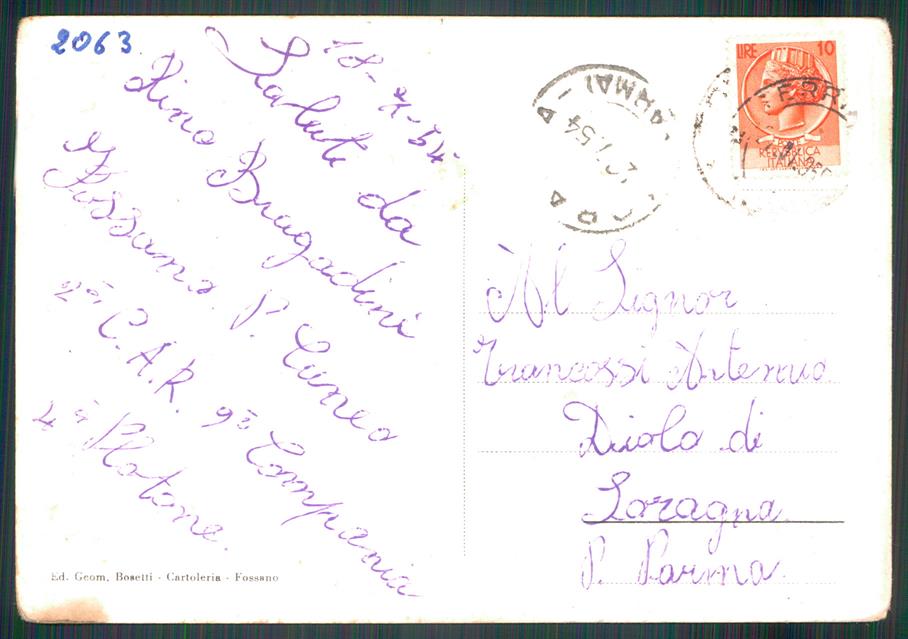 2063
18-4-54
Saluti da
Rino Bragadini
Fossano. P. Cuneo
2ª C.A.R. 9ª Compania
4ª Plotone.
Ed. Geom. Bosetti - Cartoleria - Fossano
LIRE 10
REPUBBLICA
ITALIANA
Al Signor
Francossi Artemio
Diolo di
Soragna
P. Parma